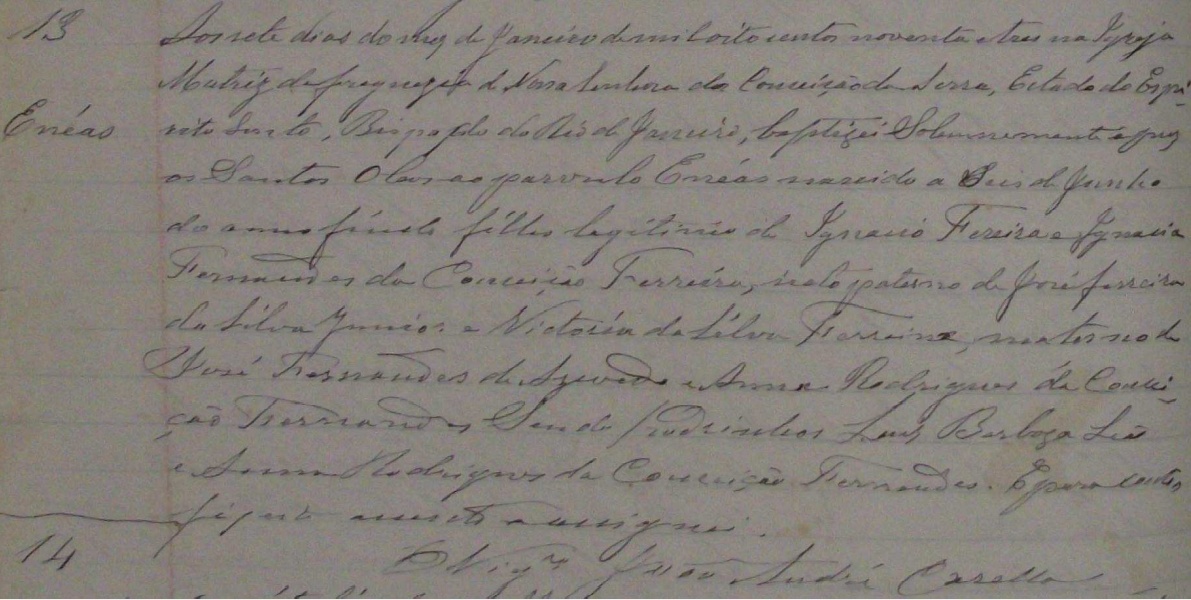 13 Aos sete dias do mez de Janeiro de mil oito centos noventa e tres na Igreja
Matriz da freguezia de Nossa Senhora da Conceição da Serra, Estado do Espi-
Enéas rito Santo, Bispado do Rio de Janeiro, baptizei Solemnemente e puz
os Santos Oleos ao parvulo Enéas nascido a Seis de Junho
do anno findo filho legitimo de Ignacio Fereira e Ignacia
Fernandes da Conceição Ferreira, neto paterno de José ferreira
da Silva Junior e Victoria da Silva Ferreira, materno de
José Fernandes de Azevedo e Anna Rodrigues da Concei-
ção Fernandes Sendo Padrinhos Luiz Barboza Leão
e Anna Rodrigues da Conceição Fernandes. E para constar
fiz este assento e assignei.
14 O Vigro João André Casella